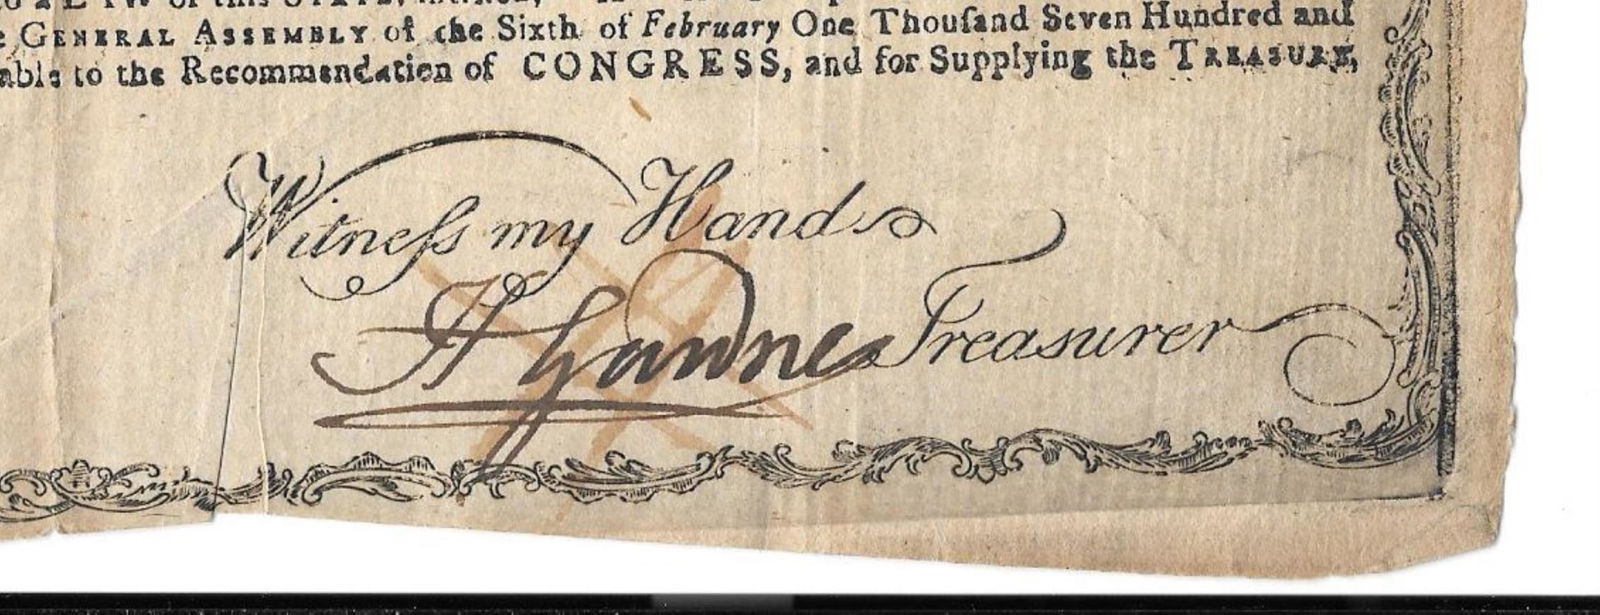 LAW of this STATE,
GENERAL ASSEMBLY of the Sixth of February One Thouſand Seven Hundred and
able to the Recommendation of CONGRESS, and for Supplying the TREASURY,
Witneſs my Hand
Treasurer